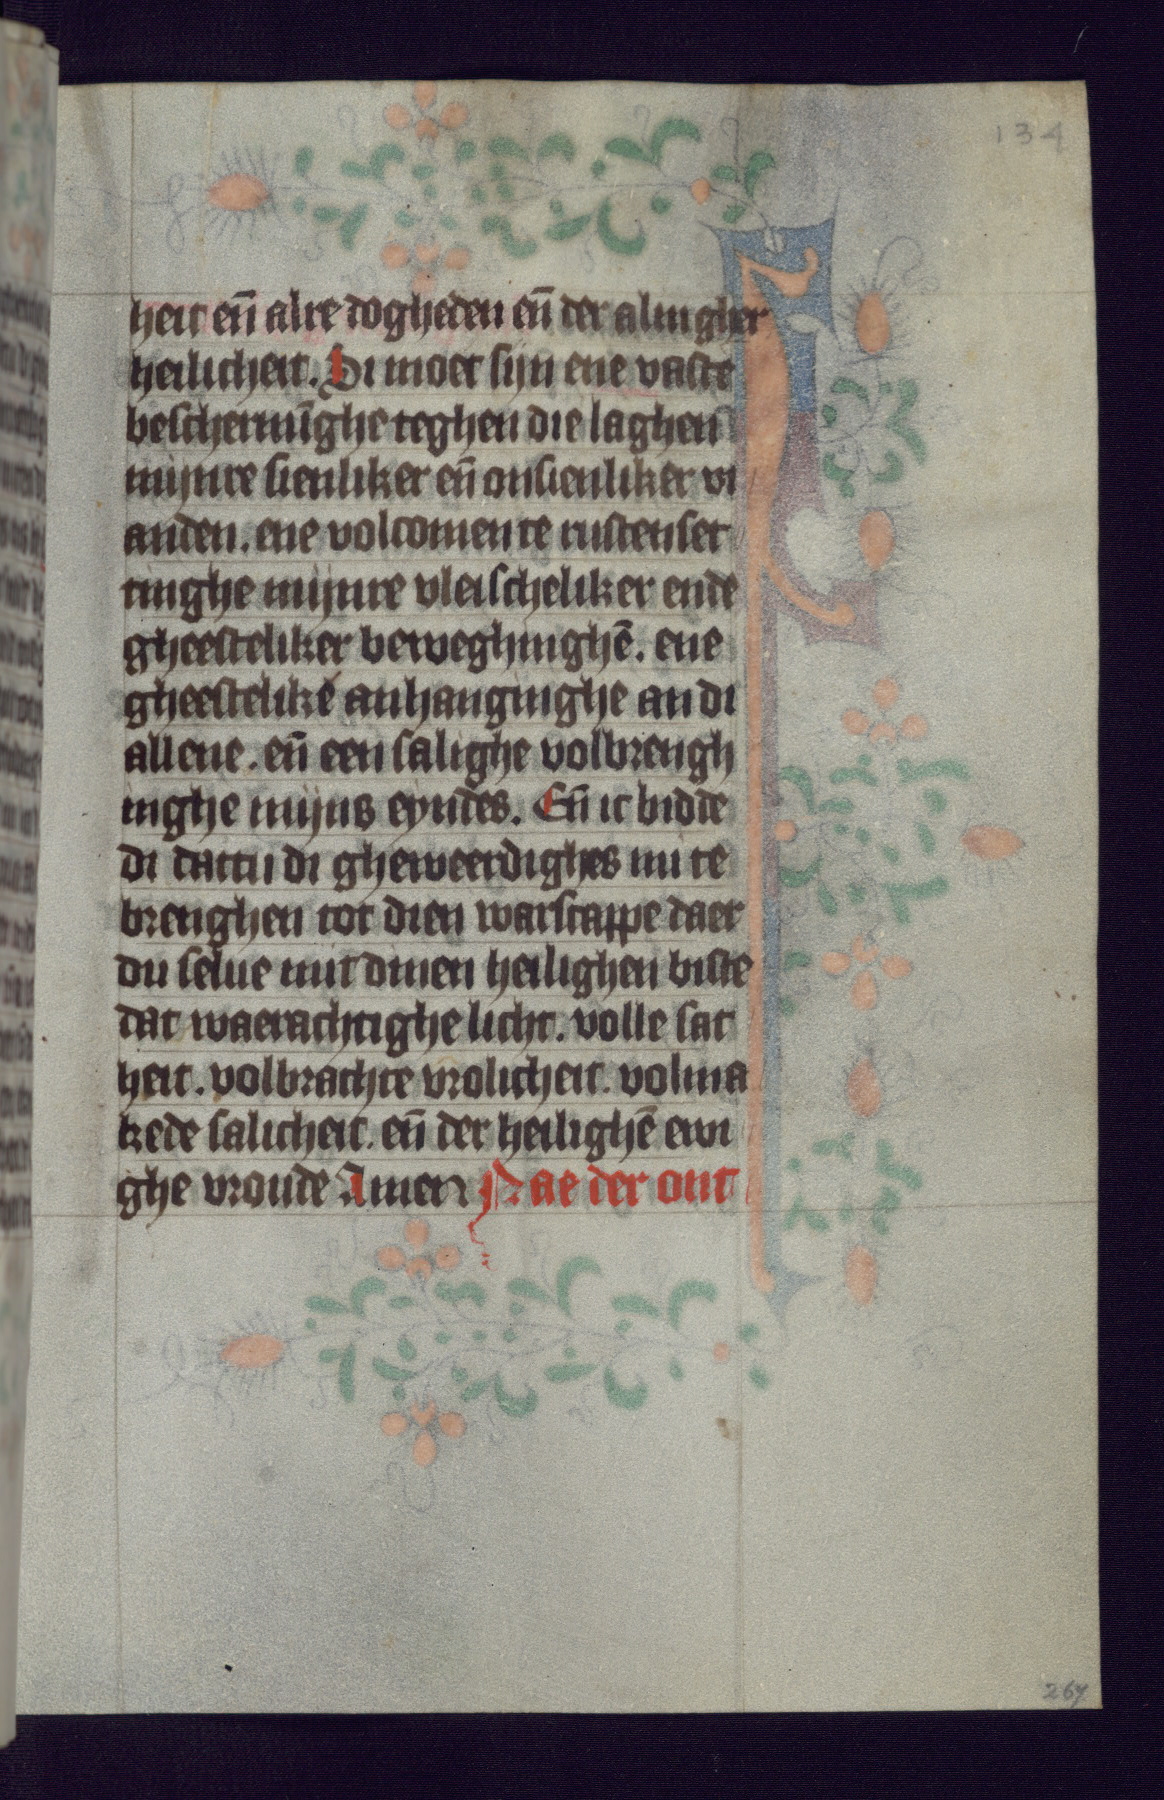 134
heit en̄ alre dogheden en̄ der alingher
heilicheit. Si moet sijn ene vaste
beschermīghe teghen die laghen
mijnre sienliker en̄ onsienliker vi
anden. ene volcomen te rustenset
tinghe mijnre vleischeliker ende
gheesteliker beweghinghē. ene
gheestelike anhanginghe an di
allene. en̄ een salighe volbrengh
inghe mijns eyndes. En̄ ic bidde
di dattu di gheweerdighes mi te
brenghen tot dien warscappe daer
du selue mit dinen heilighen biste
dat waerachtighe licht. volle sat
heit. volbrachte vrolicheit. volma
kede salicheit. en̄ der heilighē ewi
ghe vroude Amen Nae der ont
267